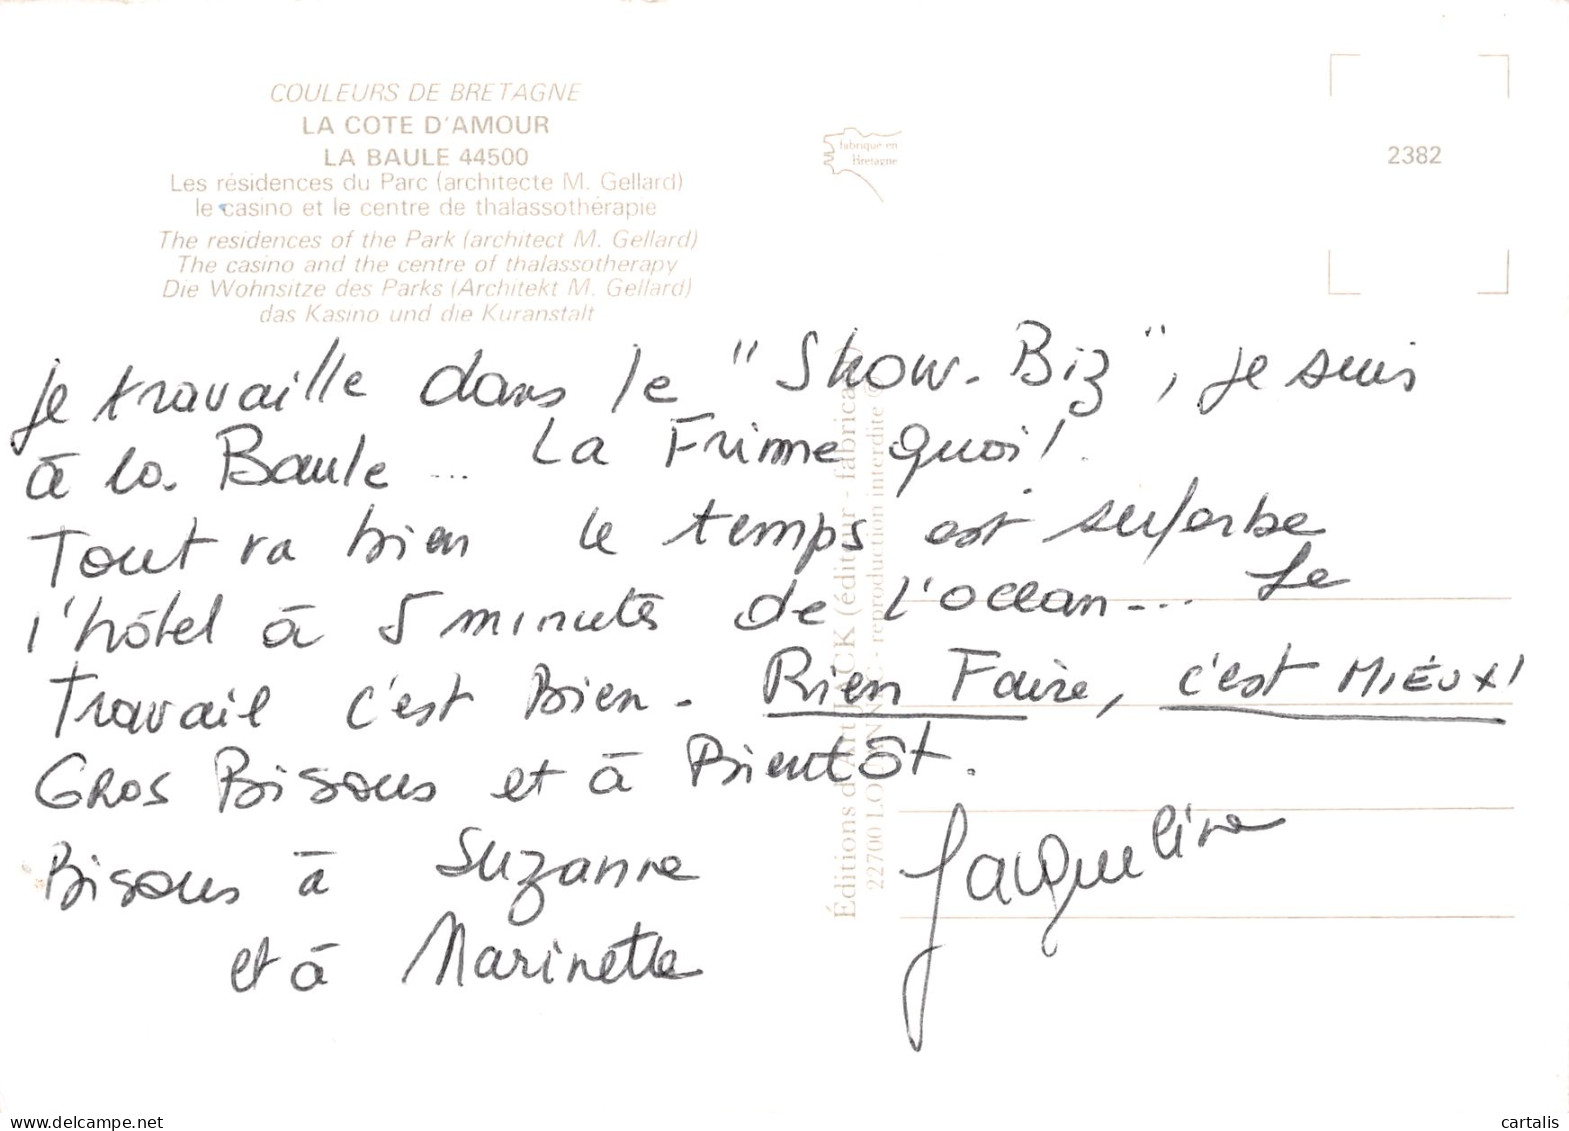 COULEURS DE BRETAGNE
LA COTE D'AMOUR
LA BAULE 44500
Les résidences du Parc (architecte M. Gellard)
le casino et le centre de thalassothérapie
The residences of the Park (architect M. Gellard)
The casino and the centre of thalassotherapy
Die Wohnsitze des Parks (Architekt M. Gellard)
das Kasino und die Kuranstalt
fabriqué en
Bretagne
2382
je travaille dans le "Show-Biz", je suis
à la Baule... La Frime quoi!
Tout va bien le temps est superbe
l'hôtel à 5 minutes de l'océan... Le
travail c'est Bien. Rien Faire, c'est MIEUX!
GROS Bisous et à Bientôt.
Bisous à Suzanne
et à Marinette
Jacqueline
Éditions d'Art JACK (éditeur - fabricant)
22700 LOUANNEC - reproduction interdite ©
delcampe.net
cartalis